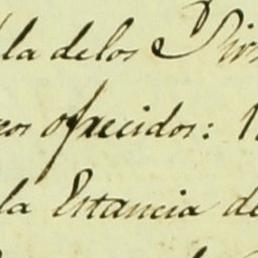 la de los
ofrecidos:
la Estancia de